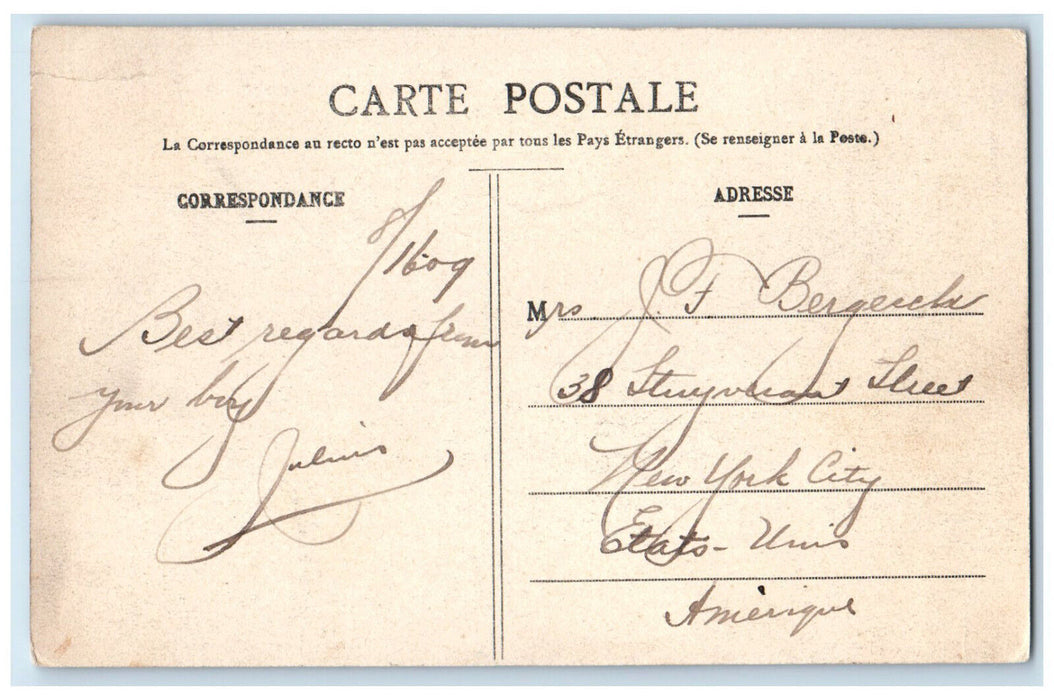 CARTE POSTALE
La Correspondance au recto n'est pas acceptée par tous les Pays Étrangers. (Se renseigner à la Poste.)
CORRESPONDANCE
8/1609
Best regards from
your boy
Julius
ADRESSE
Mrs. J. F. Bergesch
38 Stuyvesant Street
New York City
États-Unis
Amérique